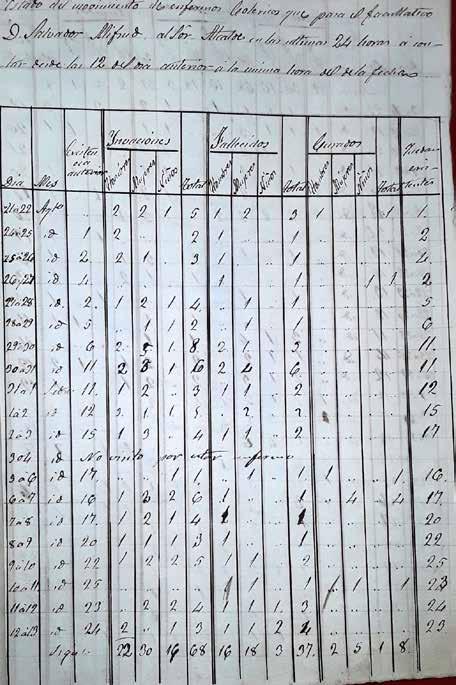 Estado del movimiento de enfermos Coléricos que para el Facultativo
D. Salvador Mifsud al Sor Alcalde en las ultimas 24 horas á con-
tar desde las 12 del dia anterior á la misma hora del de la fecha
Invaciones Fallecidos Curados
Dia Mes Existen cia anterior Hombres Mujeres Niños Total Hombres Mujeres Niños Total Hombres Mujeres Niños Total
21 a 22 Agto .. 2 2 1 5 1 2 .. 3 1 .. .. 1 1
24 a 25 id 1 2 .. .. 2 1 .. .. 1 .. .. .. .. 2
25 a 26 id 2 2 1 .. 3 1 .. .. 1 .. .. .. .. 4
26 a 27 id 4 .. .. .. .. 1 .. .. 1 .. .. 1 1 2
27 a 28 id 2 1 2 1 4 .. 1 .. 1 .. .. .. .. 5
28 a 29 id 5 .. 1 1 2 .. 1 .. 1 .. .. .. .. 6
29 a 30 id 6 2 5 1 8 2 1 .. 3 .. .. .. .. 11
30 a 31 id 11 2 3 1 6 2 4 .. 6 .. .. .. .. 11
31 a 1 11 1 2 .. 3 1 1 .. 2 .. .. .. .. 12
1 a 2 id 12 3 1 1 5 .. 2 .. 2 .. .. .. .. 15
2 a 3 id 15 1 3 .. 4 1 1 .. 2 .. .. .. .. 17
3 a 4 id No visitó por estar enfermo
id 17 .. .. 1 1 .. 1 .. 1 .. .. 1 16
6 a 7 id 16 1 2 6 1 .. .. 1 .. 4 .. 4 17
7 a 8 id 17 1 2 1 4 1 .. .. 1 .. .. .. .. 20
8 a 9 id 20 1 1 1 3 1 .. .. 1 .. .. .. .. 22
9 a 10 id 22 1 2 2 5 1 1 .. 2 .. .. .. .. 25
10 a 11 id 25 .. .. .. .. .. 1 .. 1 .. 1 .. 1 23
11 a 12 id 23 .. 2 2 4 1 1 1 3 .. .. .. .. 24
12 a 13 id 24 2 .. 1 3 1 1 2 4 .. .. .. .. 23
Sigue 22 30 16 68 16 18 3 37 2 5 1 8